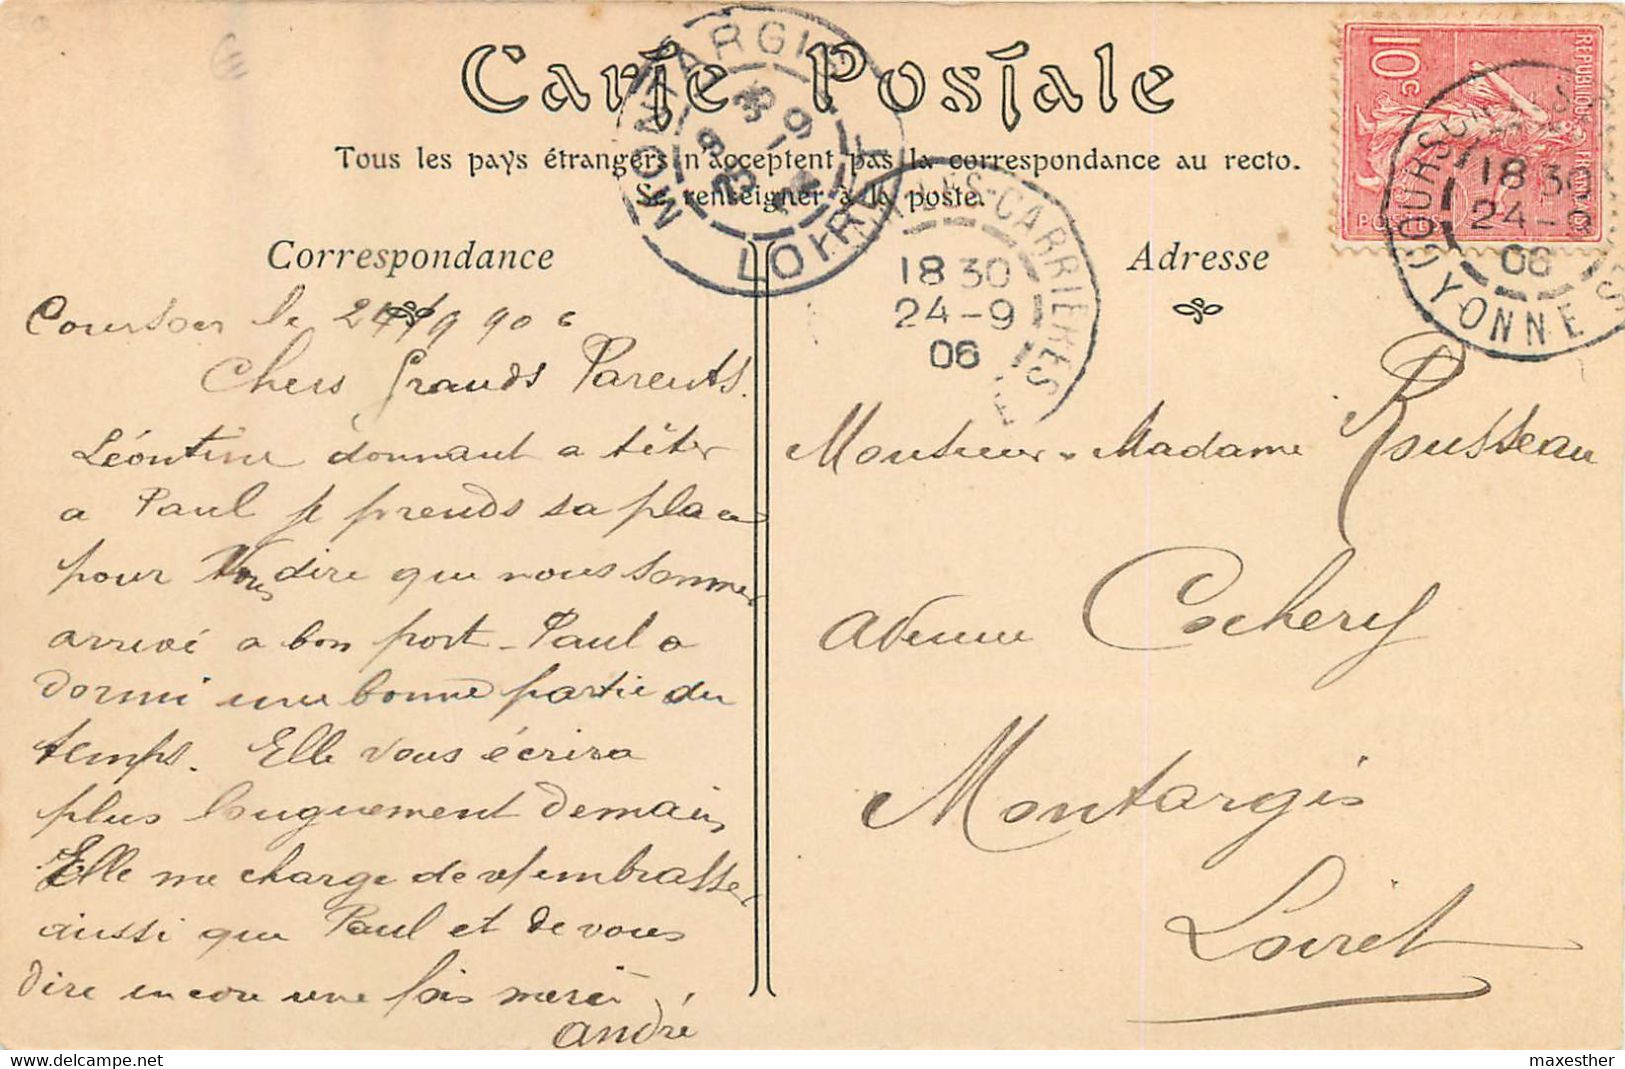 Carte Postale
Tous les pays étrangers n'acceptent pas la correspondance au recto.
Se renseigner à la poste.
Correspondance
Courson le 24/9 906
Chers Grands Parents.
Léontine donnant a têter
a Paul je prends sa place
pour Vous dire que nous sommes
arrivé a bon port - Paul a
dormi une bonne partie du
temps. Elle vous écrira
plus longuement demain,
Elle me charge de v/ embrasser
aussi que Paul et de vous
dire encore une fois merci
André
Adresse
Monsieur Madame Rousseau
avenue Cochery
Montargis
Loiret
MONTARGIS
LOIRET
COURSON-LES-CARRIÈRES
18 30
24-9
06
REPUBLIQUE FRANÇAISE
10c
POSTES
COURSON-LES
18 30
24-9
06
YONNE
maxesther